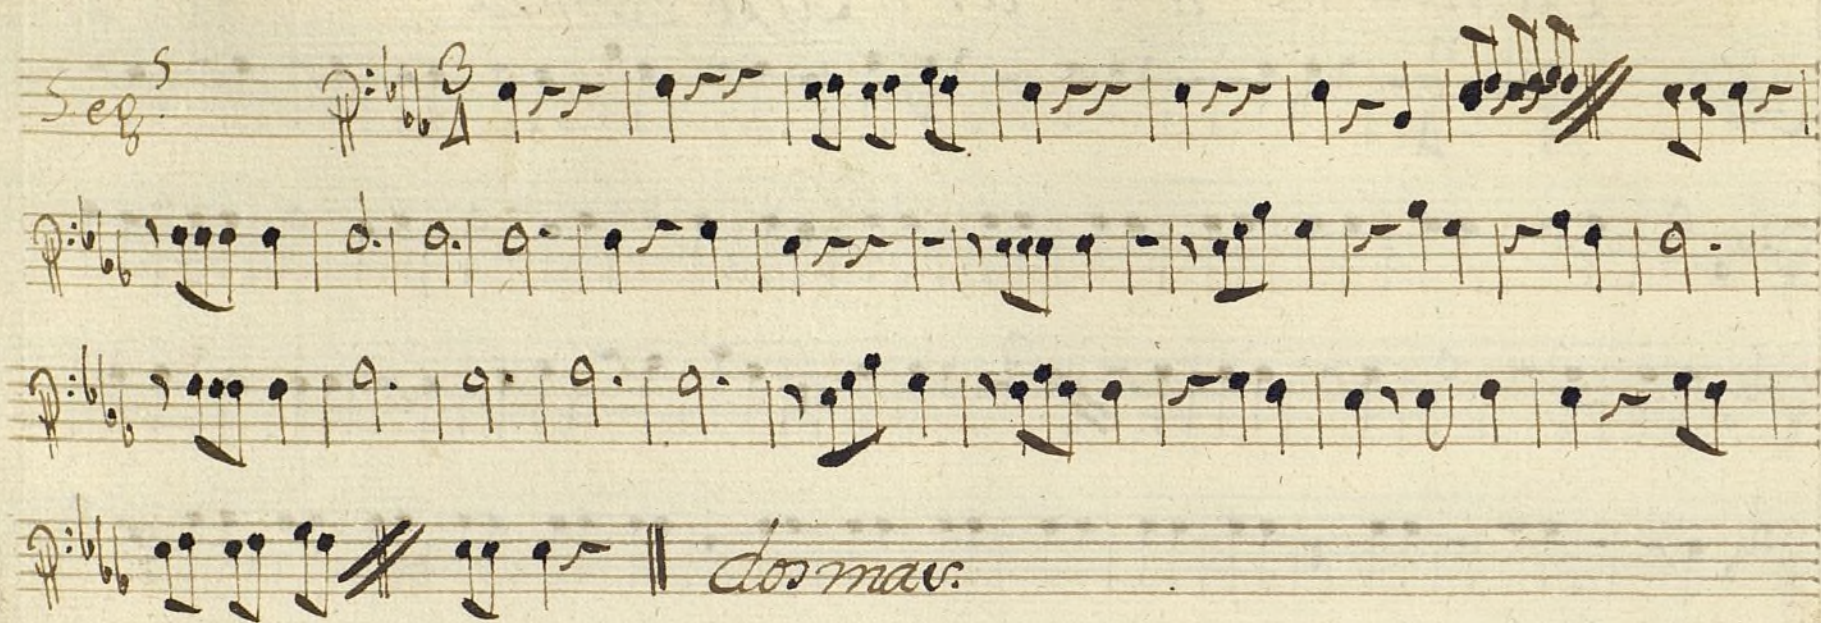 Seg.s
3
4
dos mas.